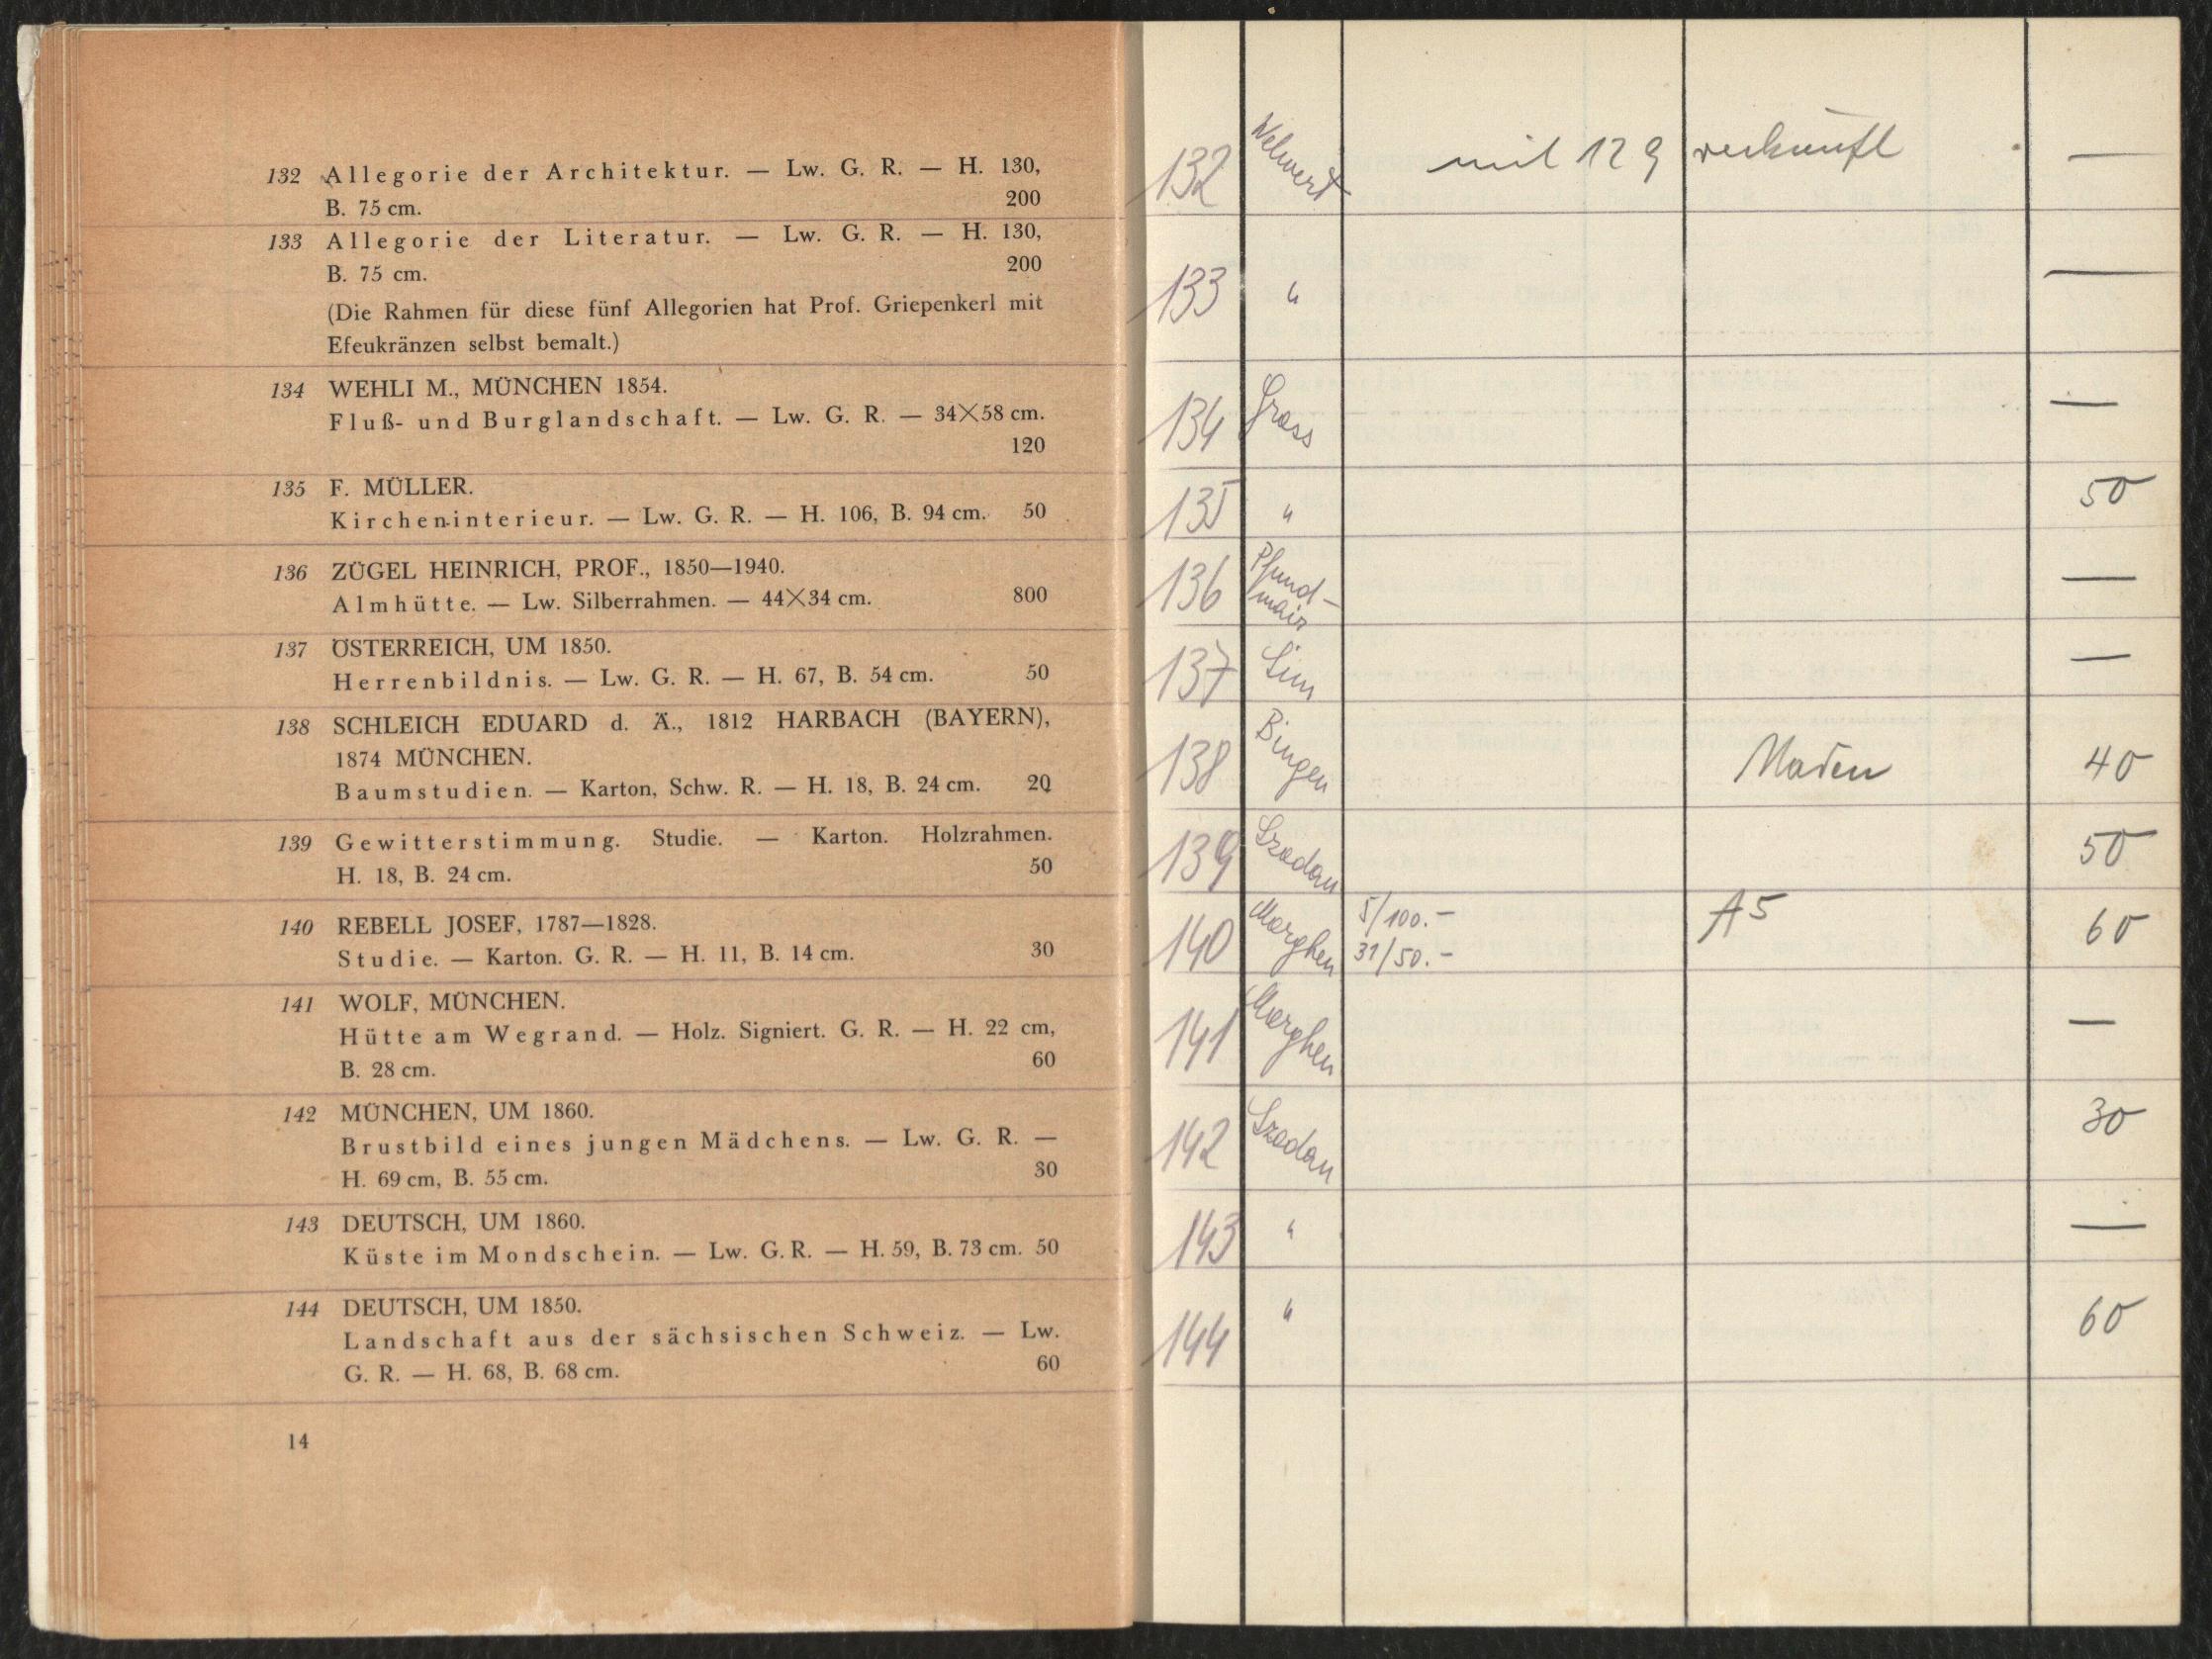 132 Allegorie der Architektur. — Lw. G. R. — H. 130,
B. 75 cm. 200
133 Allegorie der Literatur. — Lw. G. R. — H. 130,
B. 75 cm. 200
(Die Rahmen für diese fünf Allegorien hat Prof. Griepenkerl mit
Efeukränzen selbst bemalt.)
134 WEHLI M., MÜNCHEN 1854.
Fluß- und Burglandschaft. — Lw. G. R. — 34×58 cm.
120
135 F. MÜLLER.
Kircheninterieur. — Lw. G. R. — H. 106, B. 94 cm. 50
136 ZÜGEL HEINRICH, PROF., 1850—1940.
Almhütte. — Lw. Silberrahmen. — 44×34 cm. 800
137 ÖSTERREICH, UM 1850.
Herrenbildnis. — Lw. G. R. — H. 67, B. 54 cm. 50
138 SCHLEICH EDUARD d. Ä., 1812 HARBACH (BAYERN),
1874 MÜNCHEN.
Baumstudien. — Karton, Schw. R. — H. 18, B. 24 cm. 20
139 Gewitterstimmung. Studie. — Karton. Holzrahmen.
H. 18, B. 24 cm. 50
140 REBELL JOSEF, 1787—1828.
Studie. — Karton. G. R. — H. 11, B. 14 cm. 30
141 WOLF, MÜNCHEN.
Hütte am Wegrand. — Holz. Signiert. G. R. — H. 22 cm,
B. 28 cm. 60
142 MÜNCHEN, UM 1860.
Brustbild eines jungen Mädchens. — Lw. G. R. —
H. 69 cm, B. 55 cm. 30
143 DEUTSCH, UM 1860.
Küste im Mondschein. — Lw. G. R. — H. 59, B. 73 cm. 50
144 DEUTSCH, UM 1850.
Landschaft aus der sächsischen Schweiz. — Lw.
G. R. — H. 68, B. 68 cm. 60
14
132 Welwert mit 129 verkauft —
133 " —
134 Gross —
135 " 50
136 Pfund-
mair —
137 —
138 Bingen 40
139 Szodau 50
140 Marghen 5/100.- A5 60
31/50.-
141 Marghen —
142 Szodau 30
143 " —
144 " 60